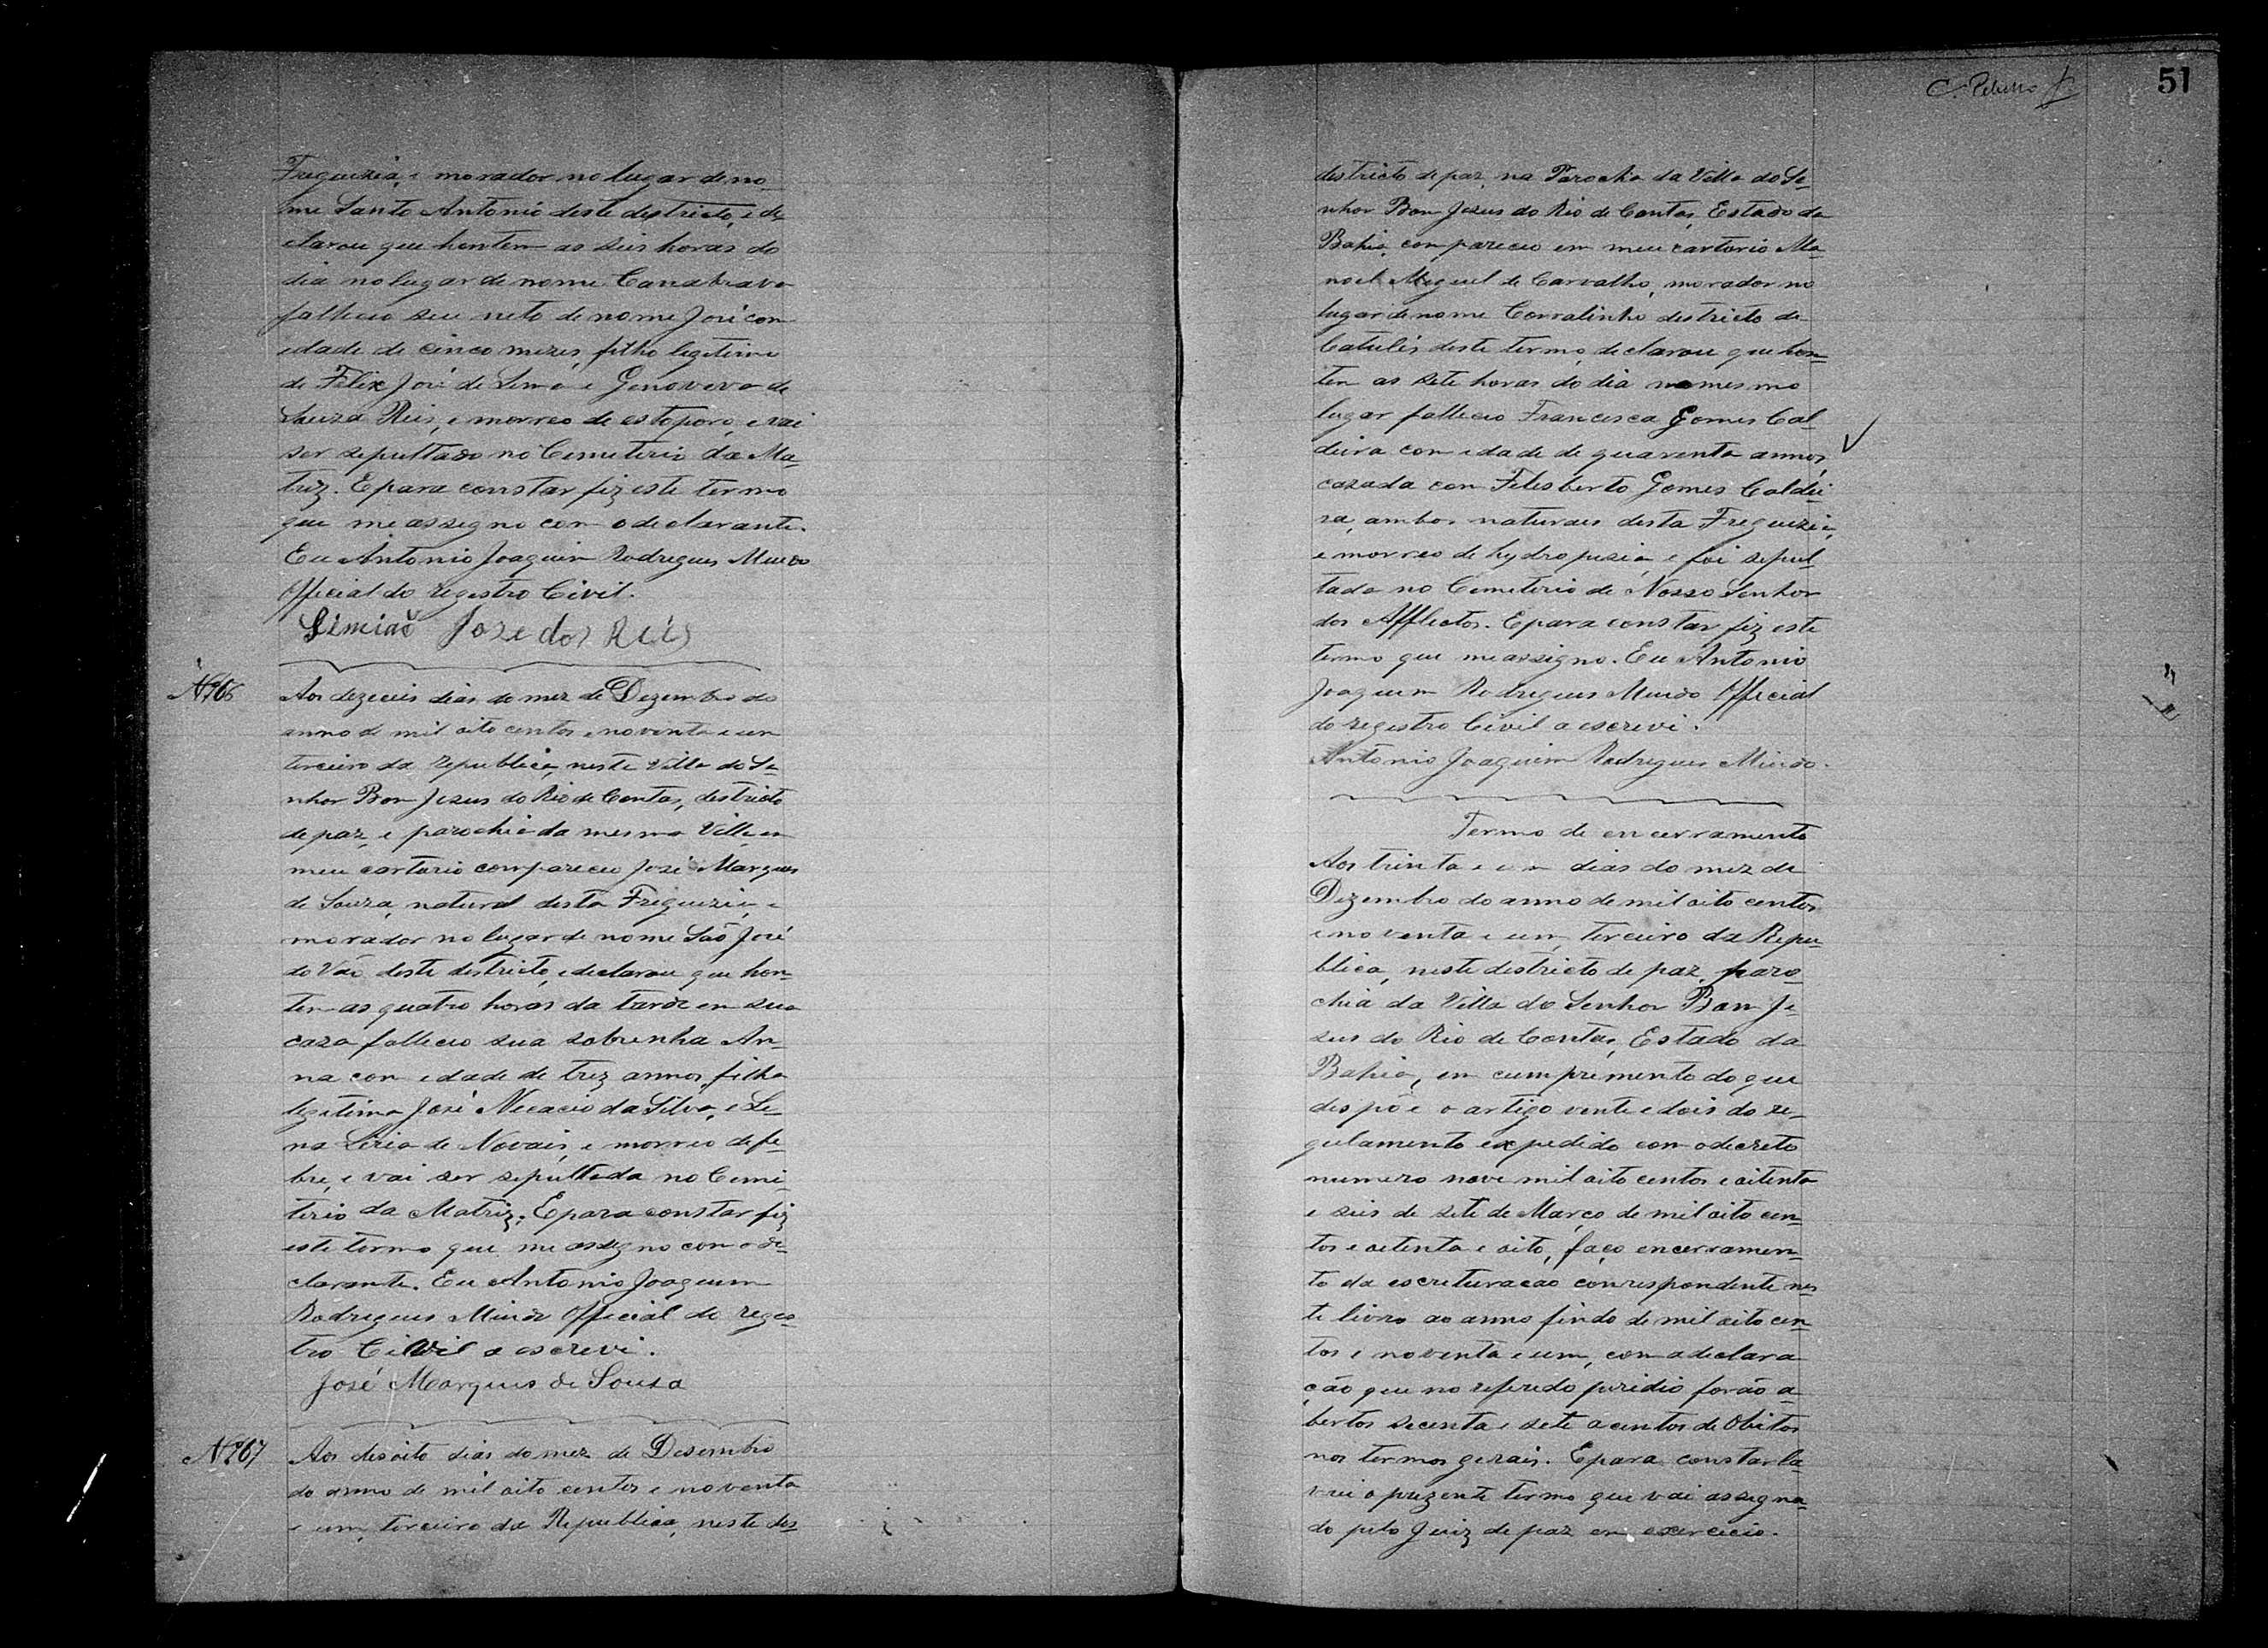 Freguezia, e morador no lugar de no-
me Santo Antonio deste destricto, e de-
clarou que hontem as seis horas do
dia no lugar de nome Canabrava
falleceo seu neto de nome José com
edade de cinco mezes, filho legitimo
de Felix José de Lima e Genoveva de
Souza Reis, e morreo de estoporo, e vai
ser sepultado no Cemeterio da Ma-
triz. E para constar fiz este termo
que me assegno com o declarante.
Eu Antonio Joaquim Rodrigues Mindo
Official do registro Civil.
Simião Joze dos Reis
Nº 66
Aos dezeceis dias do mez de Dezembro do
anno de mil oito centos e noventa e um
terceiro da republica, neste Villa do Se-
nhor Bom Jezus do Rio de Contas, destricto
de paz, e parochia da mesma Villa em
meu cartorio compareceu José Marques
de Souza, natural desta Freguezia, e
morador no lugar de nome São José
do deste destricto, e declarou que hon-
tem as quatro horas da tarde em sua
caza falleceo sua sobrinha An-
na com edade de trez annos, filha
legitima José Necacio da Silva, e Le-
na Liria de Novais, e morreo de fe-
bre, e vai ser sepultada no Cemi-
terio da Matriz. E para constar fiz
este termo que me assegno com o de-
clarante. Eu Antonio Joaquim
Rodrigues Mindo Official do regis-
tro Civil a escrevi.
José Marques de Sousa
Nº 67
Aos desoito dias do mez de Desembro
do anno de mil oito centos e noventa
e um, terceiro da Republica, neste des-
51
destricto de paz, na Parochia da Villa do Se-
nhor Bom Jezus do Rio de Contas, Estado da
Bahia, compareceu em meu cartorio Ma-
noel Meguel de Carvalho, morador no
lugar de nome Corralinho destricto de
Catulés deste termo, declarou que hon-
tem as sete horas do dia no mesmo
lugar falleceo Francisca Gomes Cal-
deira com edade de quarenta annos,
cazada com Felesberto Gomes Caldei-
ra, ambos naturaes desta Freguezia,
e morreo de hydropezia e foi sepul-
tada no Cemeterio de Nosso Senhor
dos Afflectos. E para constar fiz este
termo que me assigno. Eu Antonio
Joaquim Rodrigues Mindo Official
do registro Civil a escrevi.
Antonio Joaquim Rodrigues Mindo.
Termo de encerramento
Aos trinta e um dias do mez de
Dezembro do anno de mil oito centos
e noventa e um, terceiro da Repu-
blica, neste destricto de paz, paro-
chia da Villa do Senhor Bom Je-
zus do Rio de Contas, Estado da
Bahia, em cumprimento do que
despõe o artigo vente e dois do re-
gulamento expedido com o decreto
numero nove mil oito centos e oitenta
e seis de sete de Março de mil oito cen-
tos e oitenta e oito, faço encerramen-
to da escreturacao correspondente nes-
te livro ao anno findo de mil oito cen-
tos e noventa e um, com a declara-
ção que no referedo foráo a-
bertos secenta e sete acentos de Obitos
nos termos gerais. E para constar la-
vrei o prezente termo que vai assegna-
do pelo Juiz de paz em exercicio.